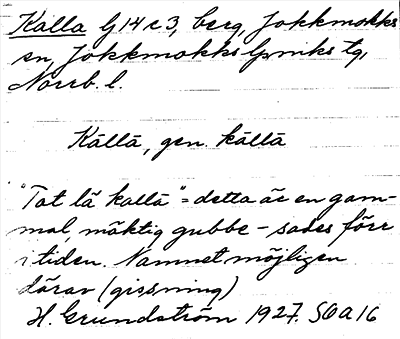 Kalla Lj14c3, berg, Jokkmokks
sn, Jokkmokks lpmks tg,
Norrb. l.
Kāllā, gen. kāllā
"Tat lä kallā" = detta är en gam-
mal, mäktig gubbe - sades förr
i tiden. Namnet möjligen
därav (gissning)
H. Grundström 1927. SOA16